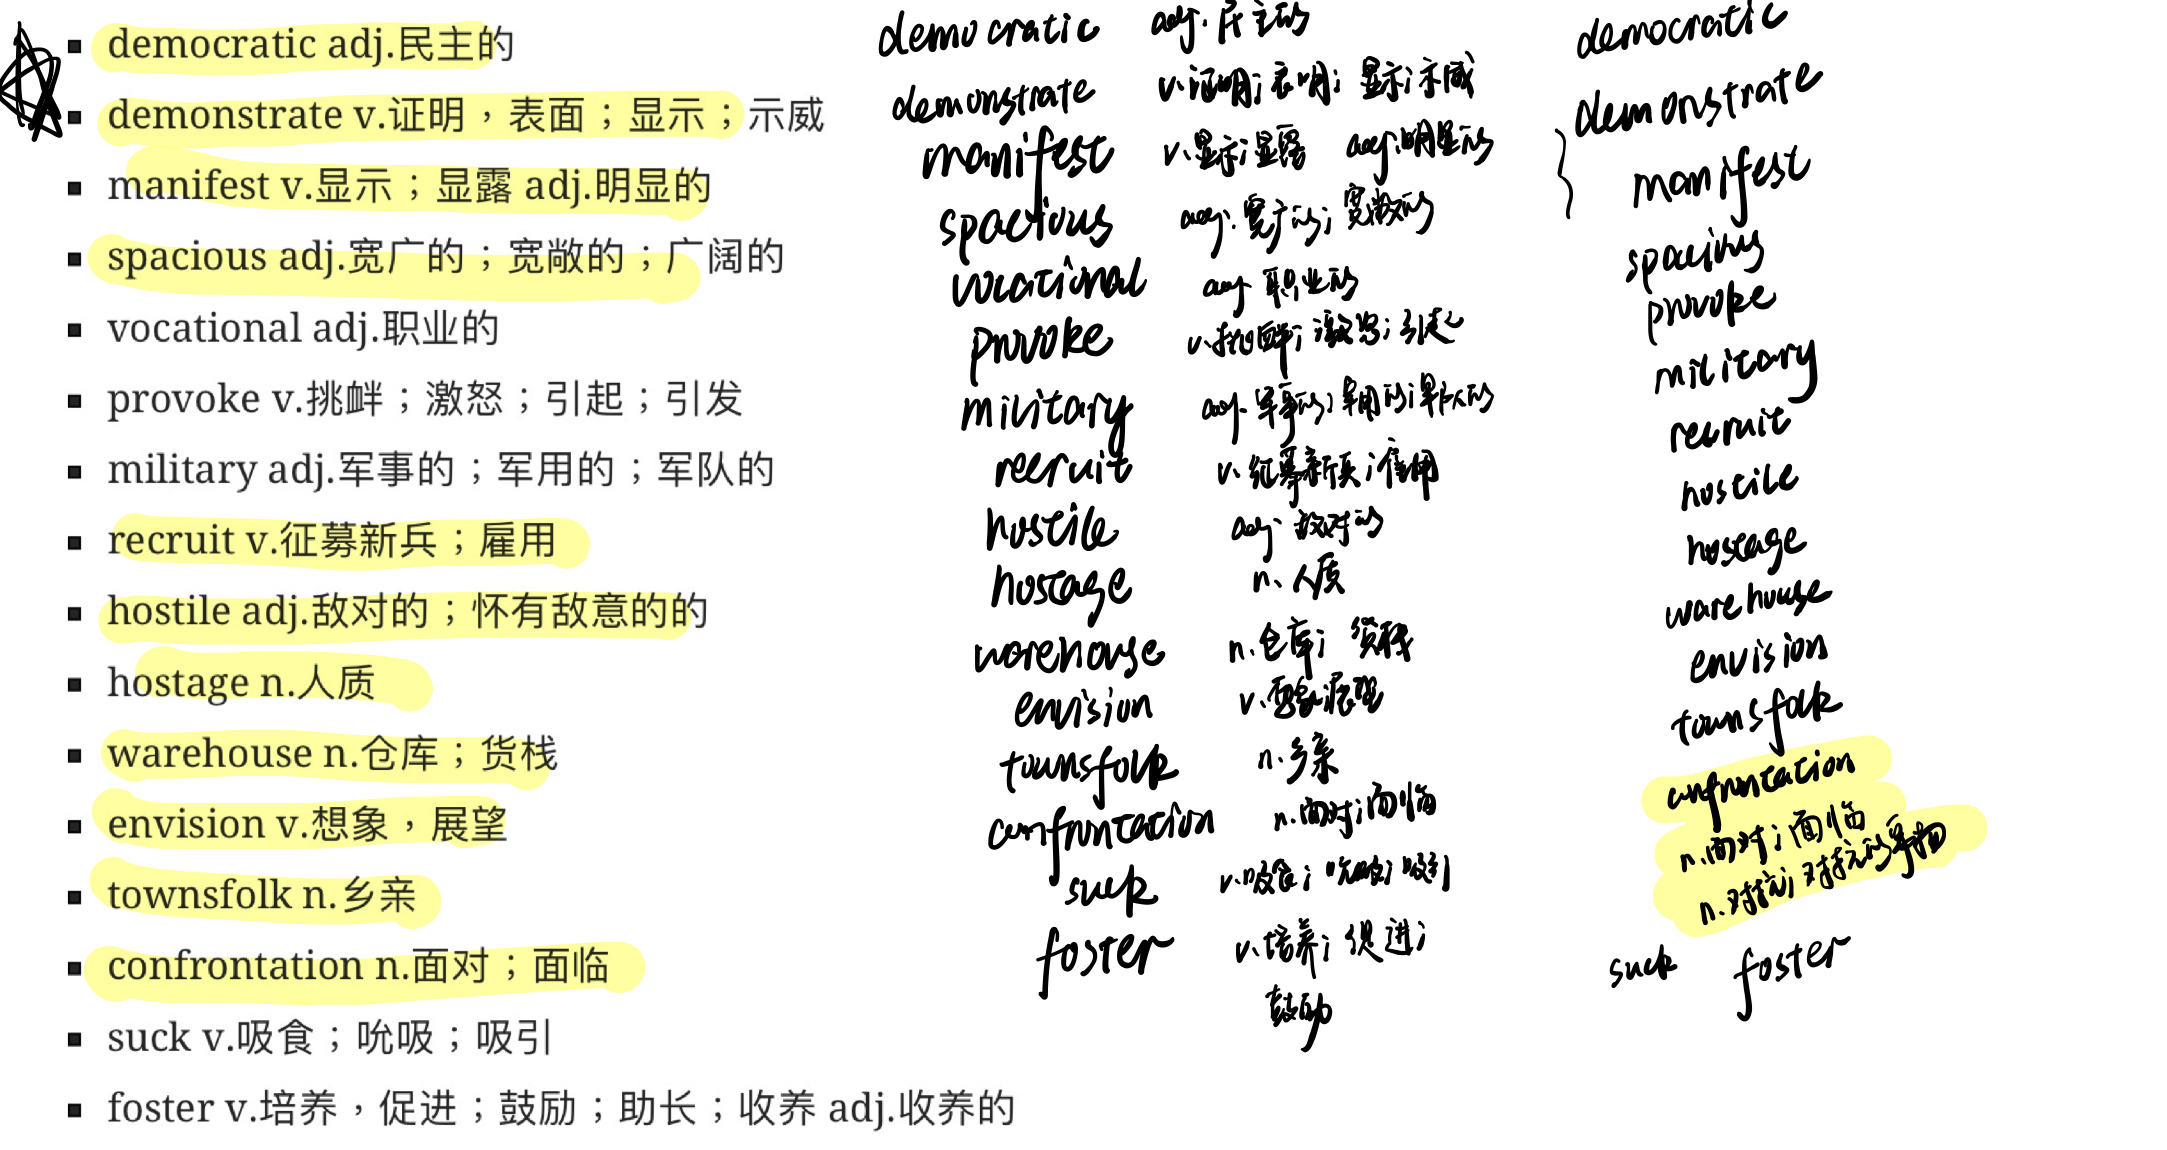 democratic adj.民主的
demonstrate v.证明，表面；显示；示威
manifest v.显示；显露 adj.明显的
spacious adj.宽广的；宽敞的；广阔的
vocational adj.职业的
provoke v.挑衅；激怒；引起；引发
military adj.军事的；军用的；军队的
recruit v.征募新兵；雇用
hostile adj.敌对的；怀有敌意的的
hostage n.人质
warehouse n.仓库；货栈
envision v.想象，展望
townsfolk n.乡亲
confrontation n.面对；面临
suck v.吸食；吮吸；吸引
foster v.培养，促进；鼓励；助长；收养 adj.收养的
democratic adj.民主的
demonstrate v.证明；表明；显示；示威
manifest v.显示；显露 adj.明显的
spacious adj.宽广的；宽敞的
vocational adj.职业的
provoke v.挑衅；激怒；引起
military adj.军事的；军用的；军队的
recruit v.征募新兵；雇用
hostile adj.敌对的
hostage n.人质
warehouse n.仓库；货栈
envision v.想象；展望
townsfolk n.乡亲
confrontation n.面对；面临
suck v.吸食；吮吸；吸引
foster v.培养；促进；
鼓励
democratic
demonstrate
manifest
spacious
provoke
military
recruit
hostile
hostage
warehouse
envision
townsfolk
confrontation
n.面对；面临
n.对抗；对抗的事物
suck foster